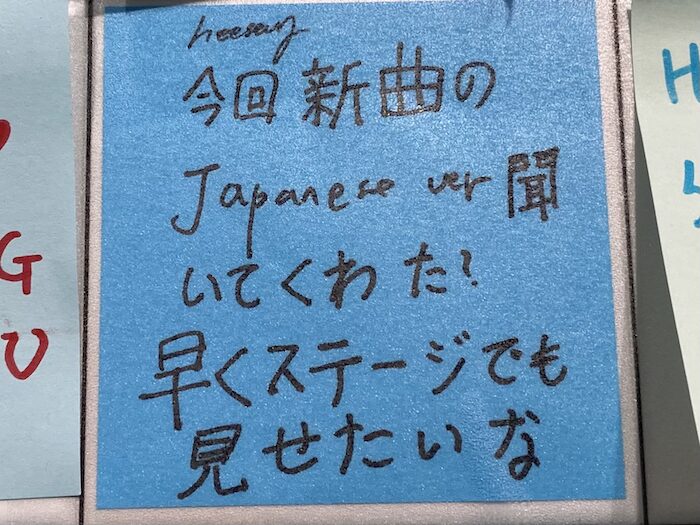 今回新曲の
Japanese ver 聞
いてくわた?
早くステージでも
見せたいな
G
U
H